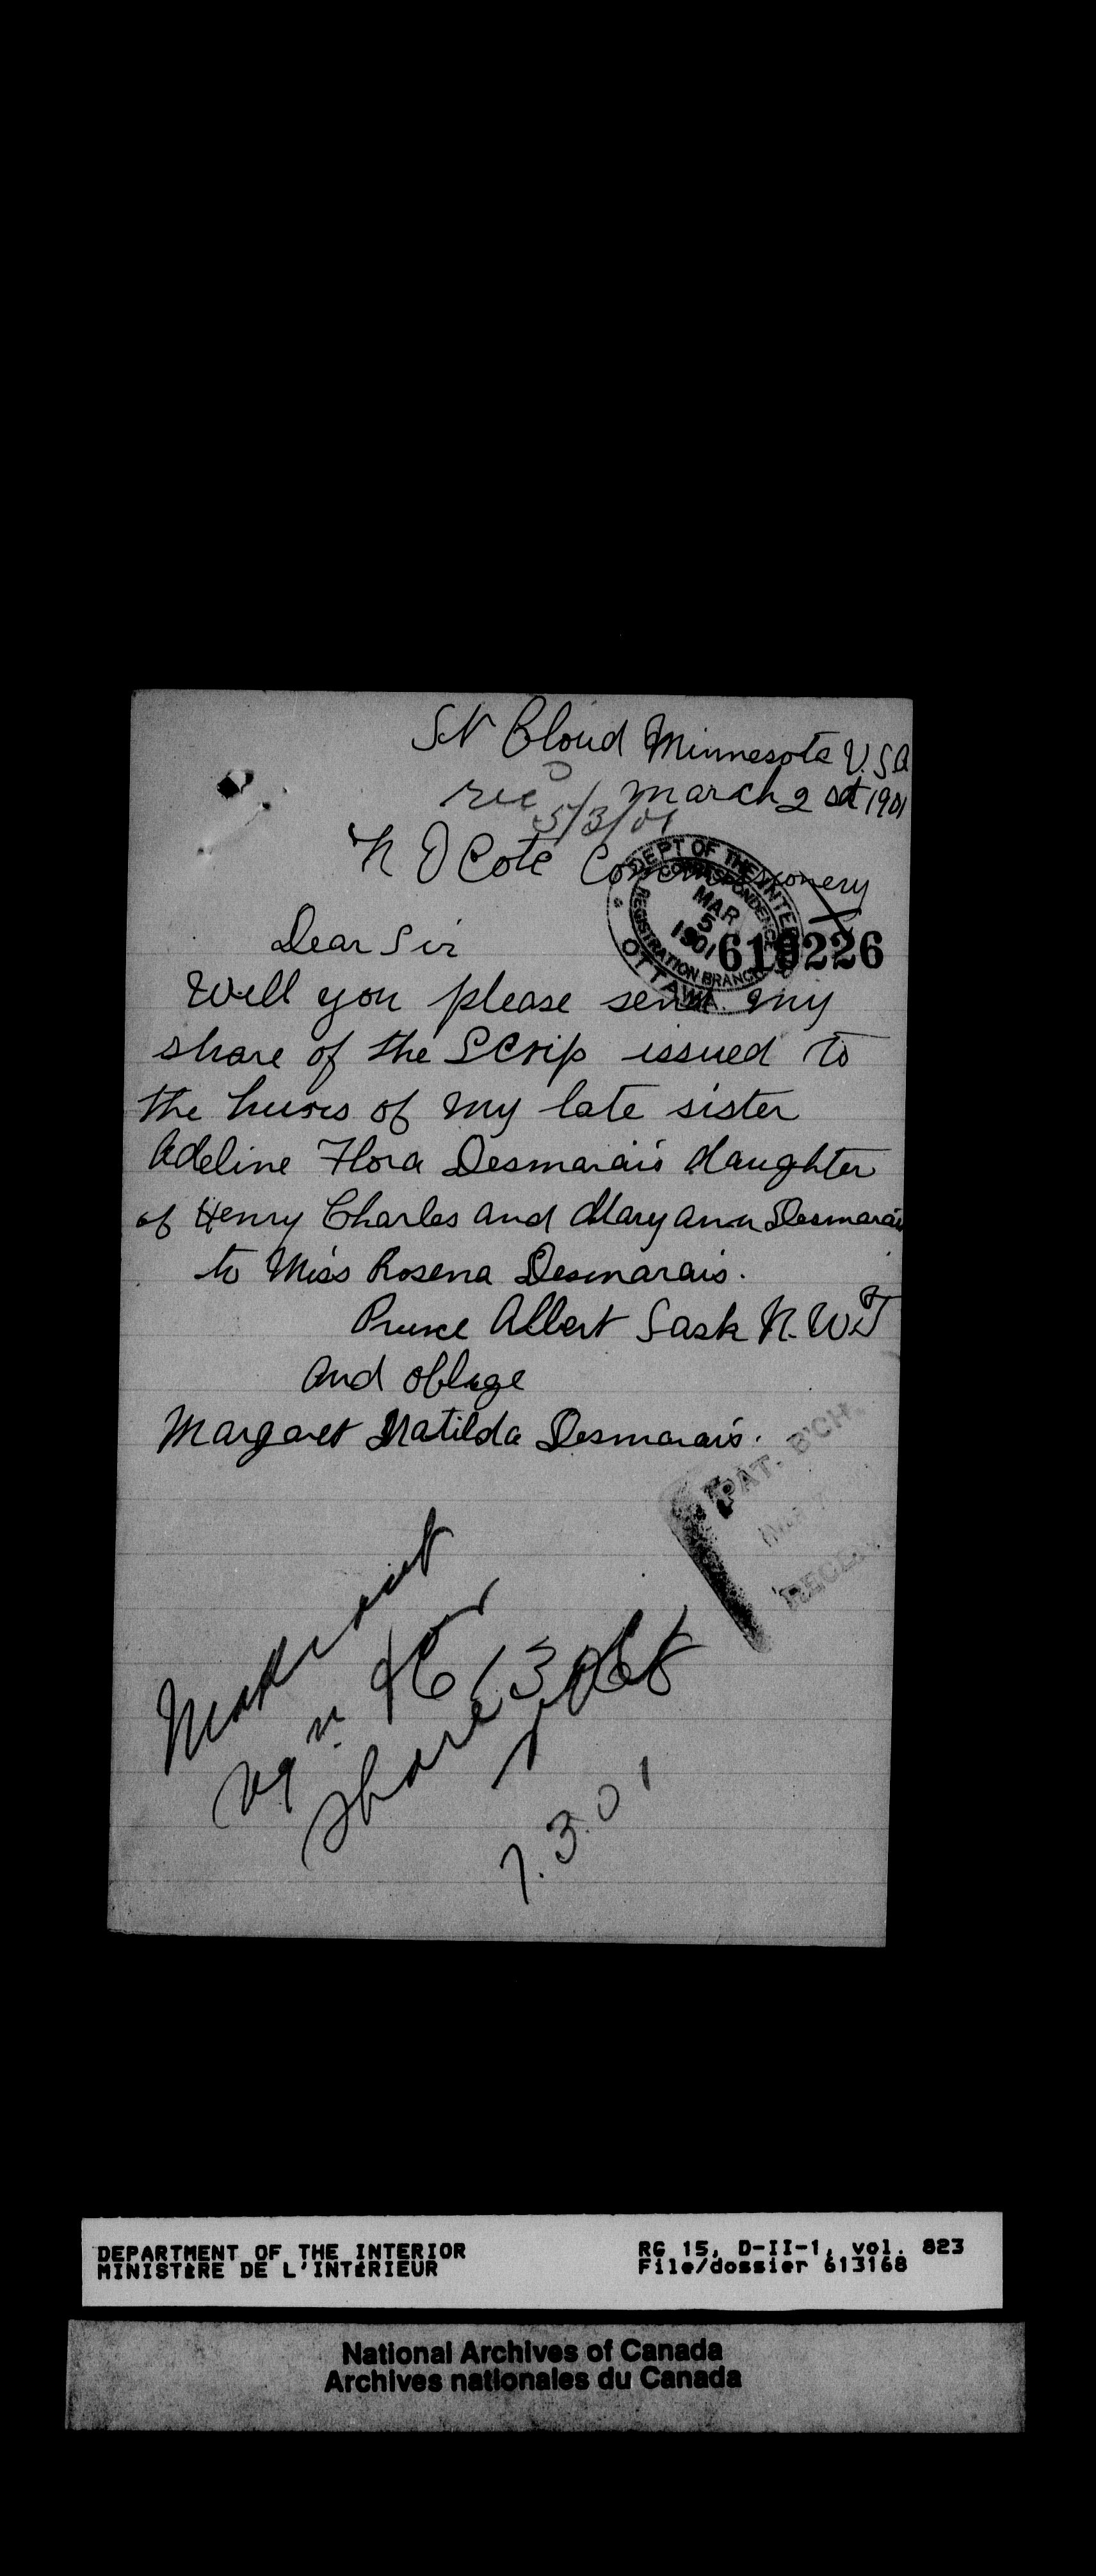 St Cloud Minnesota U.S.A
March 2 st 1901
rec 5/3/01
N O Cote Commissionery
DEPT OF THE INTERIOR
CORRESPONDENCE
MAR
5
1901
REGISTRATION BRANCH
OTTAWA
619226
Dear Sir
Will you please send my
share of the SCrip issued to
the heires of my late sister
Adeline Flora Desmarais daughter
of Henry Charles and Mary ann Desmarais
to Miss Rosena Desmarais.
Prince Albert Sask N.W.T
and oblige
Margaret Matilda Desmarais.
PAT. B'CH.
RECEIVED
share
7.3.01
DEPARTMENT OF THE INTERIOR
MINISTÈRE DE L'INTÉRIEUR
RG 15, D-II-1, vol. 823
File/dossier 613168
National Archives of Canada
Archives nationales du Canada